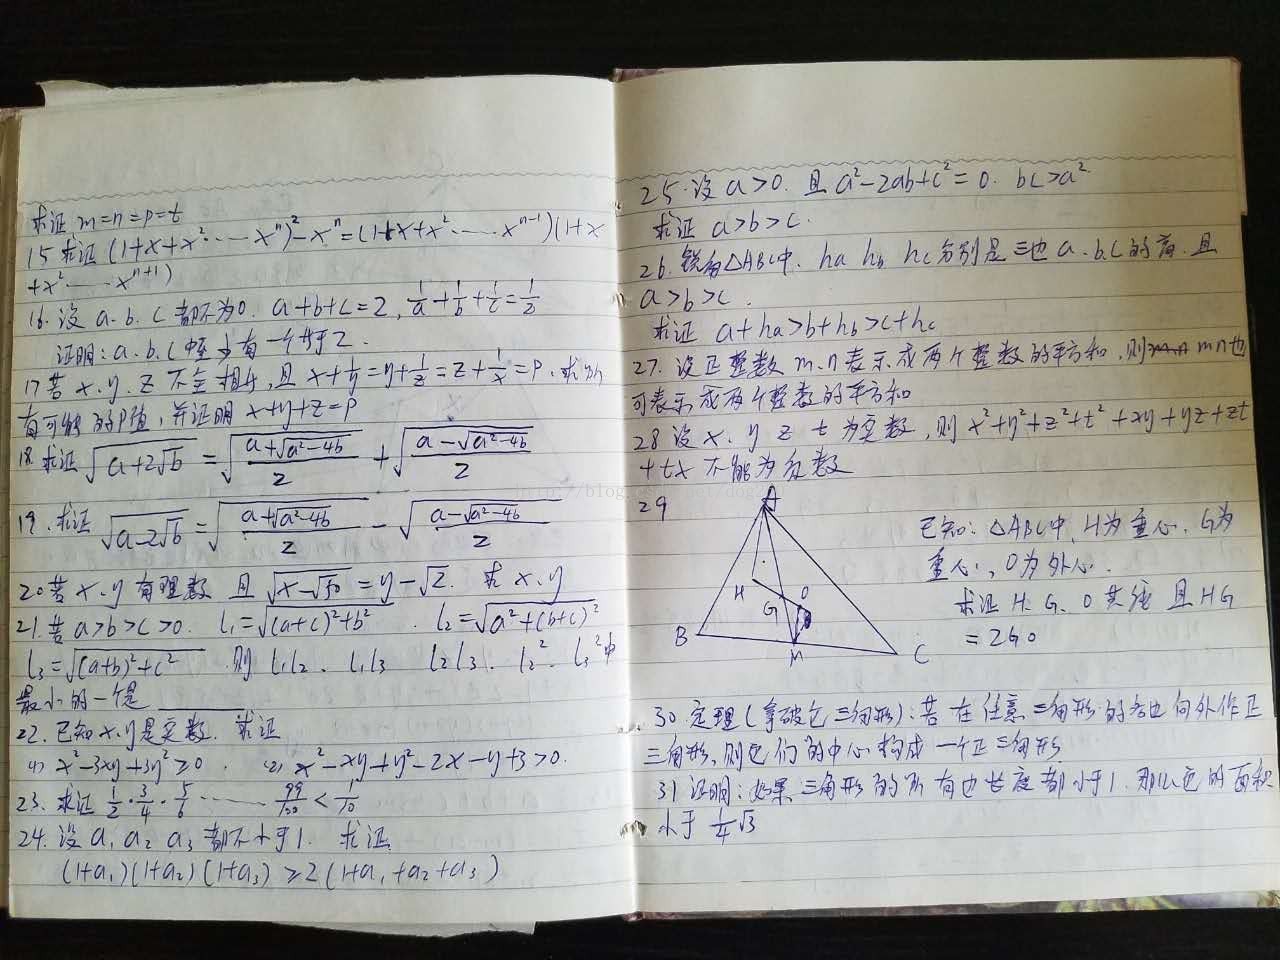 求证 m=n=p=t
15 求证 (1+x+x²·····xⁿ)²-xⁿ=(1+x+x²·····xⁿ⁻¹)(1+x
+x²·····xⁿ⁺¹)
16. 设 a.b.c 都不为0. a+b+c=2, 1/a+1/b+1/c=1/2
证明: a.b.c 中至少有一个等于2.
17 若 x.y.z 不全相等, 且 x+1/y=y+1/z=z+1/x=P. 求所
有可能的P值, 并证明 x+y+z=P
18 求证 √(a+2√b) = √((a+√(a²-4b))/2) + √((a-√(a²-4b))/2)
19. 求证 √(a-2√b) = √((a+√(a²-4b))/2) - √((a-√(a²-4b))/2)
20 若 x.y 有理数 且 √(x-√50) = y-√2. 求 x.y
21. 若 a>b>c>0. l₁=√((a+c)²+b²) . l₂=√(a²+(b+c)²)
l₃=√((a+b)²+c²) 则 l₁l₂. l₁l₃ l₂l₃. l₂². l₃²中
最小的一个是 ______
22. 已知 x.y 是实数. 求证
(1) x²-3xy+3y²≥0 . (2) x²-xy+y²-2x-y+3>0.
23. 求证 1/2·3/4·5/6 ······ 99/100<1/10
24. 设 a₁ a₂ a₃ 都不小于1. 求证
(1+a₁)(1+a₂)(1+a₃)≥2(1+a₁+a₂+a₃)
25. 设 a>0. 且 a²-2ab+c²=0. bc>a²
求证 a>b>c.
26. 锐角△ABC中. ha hb hc 分别是三边 a.b.c 的高. 且
a>b>c.
求证 a+ha>b+hb>c+hc
27. 设正整数 m.n 表示成两个整数的平方和, 则 mn也
可表示成两个整数的平方和
28 设 x. y z t 为实数, 则 x²+y²+z²+t²+xy+yz+zt
+tx 不能为负数
29
A
H
G
O
B
M
C
已知: △ABC中, H为垂心. G为
重心, O为外心.
求证 H. G. O 共线 且 HG
=2GO
30 定理(拿破仑三角形): 若在任意三角形的各边向外作正
三角形, 则它们的中心构成一个正三角形
31 证明: 如果三角形的所有边长度都小于1. 那么它的面积
小于 1/4√3